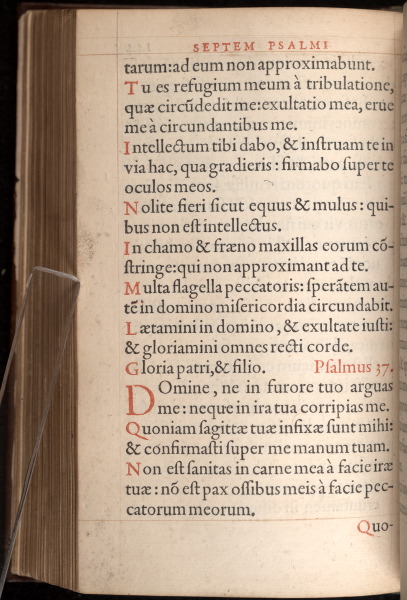 SEPTEM PSALMI
tarum:ad eum non approximabunt.
Tu es refugium meum à tribulatione,
quæ circũdedit me:exultatio mea, erue
me à circundantibus me.
Intellectum tibi dabo, & inſtruam te in
via hac, qua gradieris : firmabo ſuper te
oculos meos.
Nolite fieri ſicut equus & mulus : qui-
bus non eſt intellectus.
In chamo & fræno maxillas eorum cō-
ſtringe:qui non approximant ad te.
Multa flagella peccatoris: ſperãtem au-
tẽ in domino miſericordia circundabit.
Lætamini in domino , & exultate iuſti:
& gloriamini omnes recti corde.
Gloria patri,& filio. Pſalmus 37.
DOmine , ne in furore tuo arguas
me : neque in ira tua corripias me.
Quoniam ſagittæ tuæ infixæ ſunt mihi:
& confirmaſti ſuper me manum tuam.
Non eſt ſanitas in carne mea à facie iræ
tuæ : nõ eſt pax oſſibus meis à facie pec-
catorum meorum.
Quo-